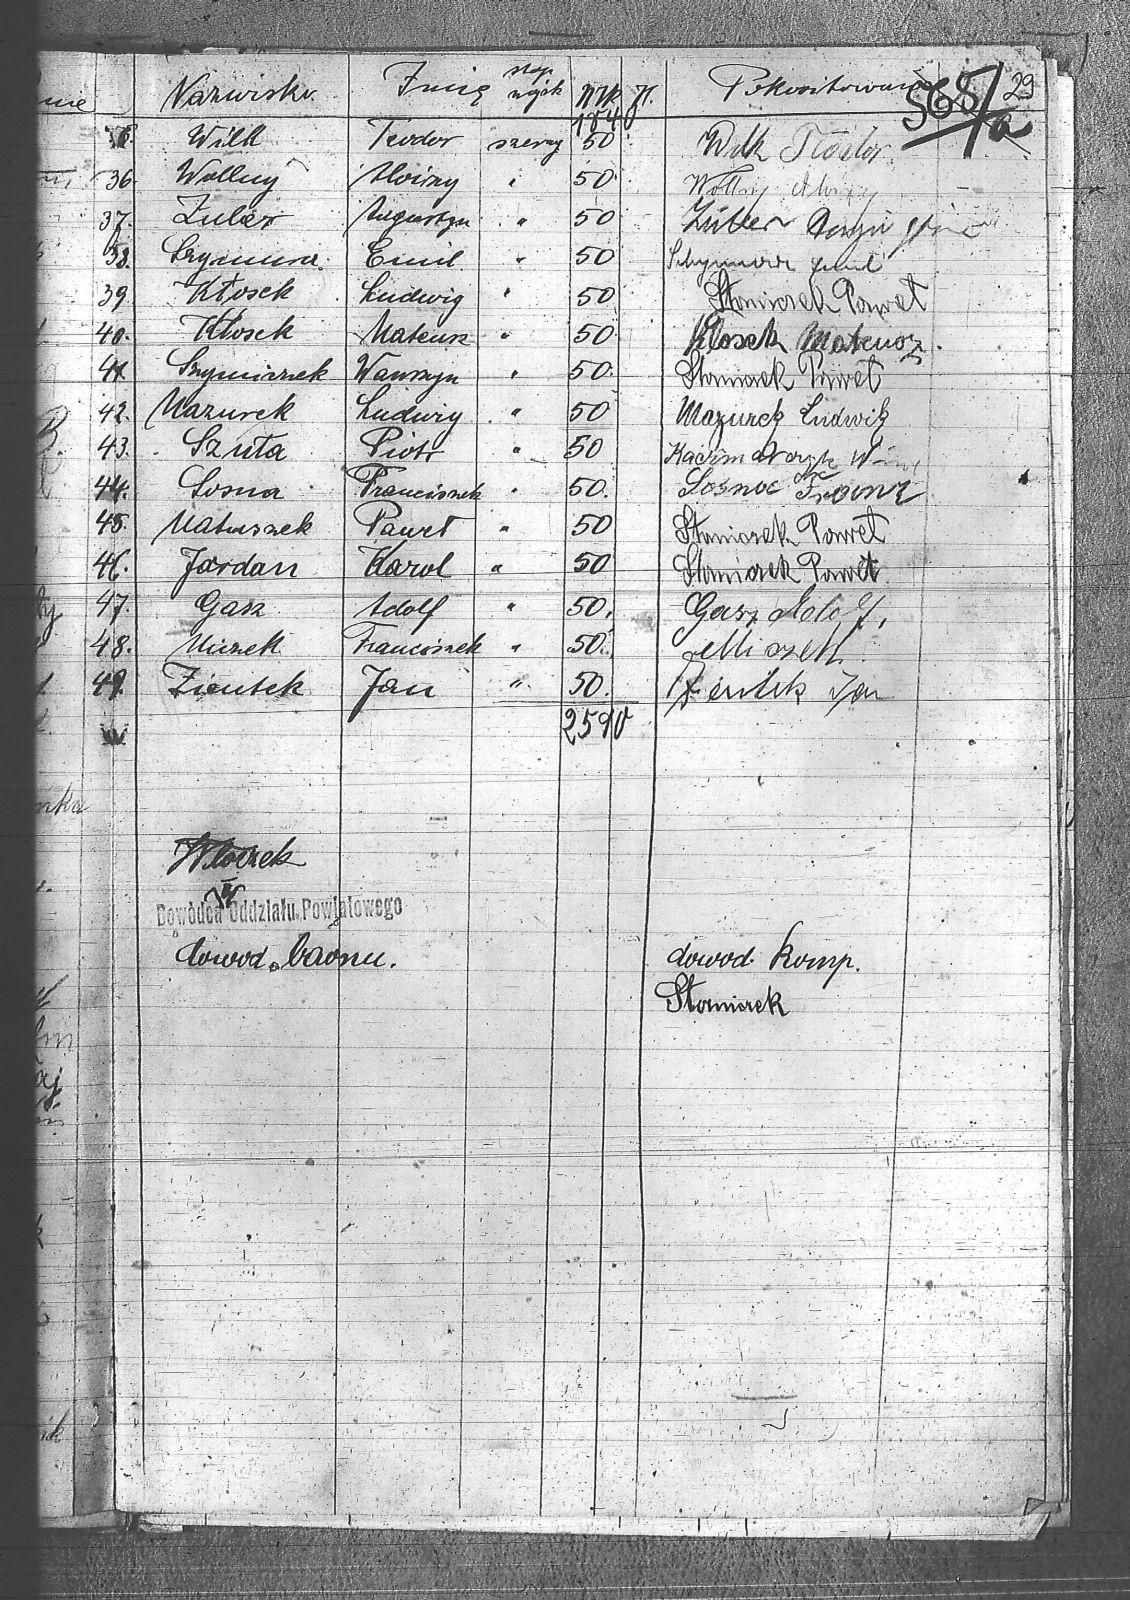 Nazwisko Imię stop. wojsk Mk. Pokwitowanie 565/a 29
1840
Wilk Teodor szereg 50 Wilk Teodor
36. Wollny Aloizy " 50 Wollny Aloizy
37. Zuber Augustyn " 50 Züber
38. Szymura Emil " 50 Schymura Emil
39. Kłosek Ludwig " 50 Staniczek Paweł
40. Kłosek Mateusz " 50 Kłosek Mateusz.
41. Szymiczek Wawrzyn " 50 Staniczek Paweł
42. Mazurek Ludwig " 50 Mazurek Ludwik
43. Szuta Piotr " 50
44. Sosna Franciszek " 50. Sosna Franz
45. Matuszek Paweł " 50 Staniczek Paweł
46. Jordan Karol " 50 Staniczek Paweł
47. Gasz Adolf " 50. Gasz Adolf,
48. Miczek Franciszek " 50.
49. Zientek Jan " 50. Zientek Jan
2590
Wloczek
Dowódca Oddziału Powiatowego
dowod. baonu. dowod. komp.
Staniczek